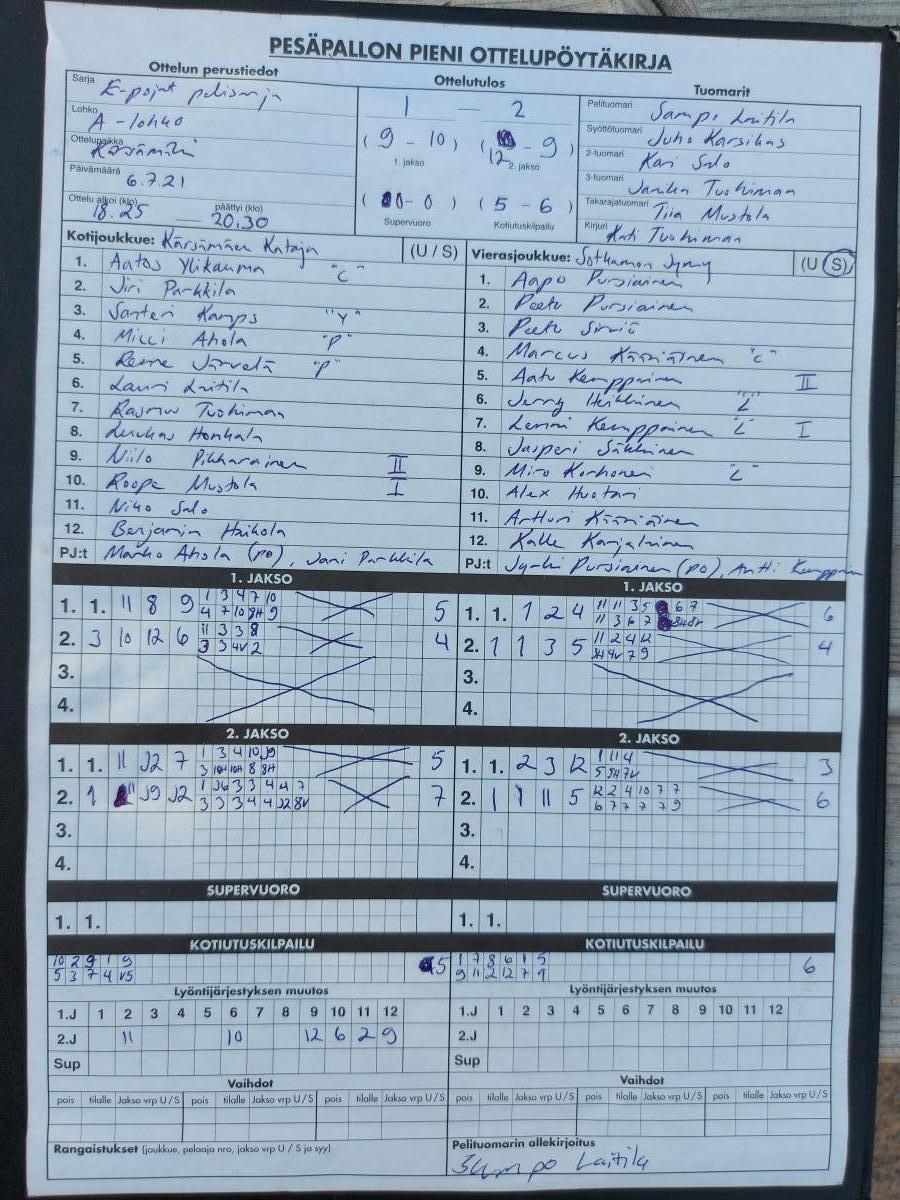 PESÄPALLON PIENI OTTELUPÖYTÄKIRJA
Ottelun perustiedot
Sarja E-pojat pelisarja
Lohko A-lohko
Ottelupaikka Kärsämäki
Päivämäärä 6.7.21
Ottelu alkoi (klo) 18.25 päättyi (klo) 20.30
Ottelutulos
1 — 2
(9 - 10) 1. jakso (12 - 9) 2. jakso
(0 - 0) Supervuoro (5 - 6) Kotiutuskilpailu
Tuomarit
Pelituomari Sampo Laitila
Syöttötuomari Juho Karsikas
2-tuomari Kari Salo
3-tuomari Janika Tuohimaa
Takarajatuomari Tiia Mustola
Kirjuri Kati Tuohimaa
Kotijoukkue: Kärsämäen Kataja (U / S)
1. Aatos Ylikauma "C"
2. Jiri Parkkila
3. Santeri Kamps "Y"
4. Micci Ahola "P"
5. Järvelä "P"
6. Lauri Laitila
7. Rasmus Tuohimaa
8. Luukas Honkala
9. Niilo Pikkarainen II
10. Roope Mustola I
11. Niko Salo
12. Benjamin Haikola
PJ:t Marko Ahola (po), Jani Parkkila
Vierasjoukkue: Sotkamon Jymy (U / S)
1. Aapo Pursiainen
2. Peetu Pursiainen
3. Peetu Sirviö
4. Marcus Kääriäinen "C"
5. Aatu Kemppainen II
6. Jerry Heikkinen "L"
7. Lenni Kemppainen "L" I
8. Jasperi Säkkinen
9. Miro Korhonen "L"
10. Alex Huotari
11. Artturi Kääriäinen
12. Kalle Karjalainen
PJ:t Jyrki Pursiainen (po), Antti Kemppain
1. JAKSO
1. 1. 11 8 9 1 3 4 7 10 5
4 7 10 8H 9
2. 3 10 12 6 11 3 3 8 4
3 3 4V 2
3.
4.
1. JAKSO
1. 1. 1 2 4 11 11 3 5 6 7 6
11 3 6 7 8H 8V
2. 1 1 3 5 11 2 4 12 4
3H 4V 7 9
3.
4.
2. JAKSO
1. 1. 11 J2 7 1 3 4 10 J9 5
3 10H 10H 8 8H
2. 1 11 J9 J2 1 J6 3 3 4 4 7 7
3 3 3 4 4 J2 8V
3.
4.
2. JAKSO
1. 1. 2 3 12 1 11 4 3
5 5H 7V
2. 1 1 11 5 12 2 4 10 7 7 6
6 7 7 7 7 9
3.
4.
SUPERVUORO
1. 1.
SUPERVUORO
1. 1.
KOTIUTUSKILPAILU
10 2 9 1 9 5
5 3 7 4 V5
KOTIUTUSKILPAILU
1 7 8 6 1 5 6
9 11 2 12 7 9
Lyöntijärjestyksen muutos
1.J 1 2 3 4 5 6 7 8 9 10 11 12
2.J 11 10 12 6 2 9
Sup
Lyöntijärjestyksen muutos
1.J 1 2 3 4 5 6 7 8 9 10 11 12
2.J
Sup
Vaihdot
pois tilalle Jakso vrp U / S pois tilalle Jakso vrp U / S pois tilalle Jakso vrp U / S
Vaihdot
pois tilalle Jakso vrp U / S pois tilalle Jakso vrp U / S pois tilalle Jakso vrp U / S
Rangaistukset (joukkue, pelaaja nro, jakso vrp U / S ja syy)
Pelituomarin allekirjoitus
Sampo Laitila